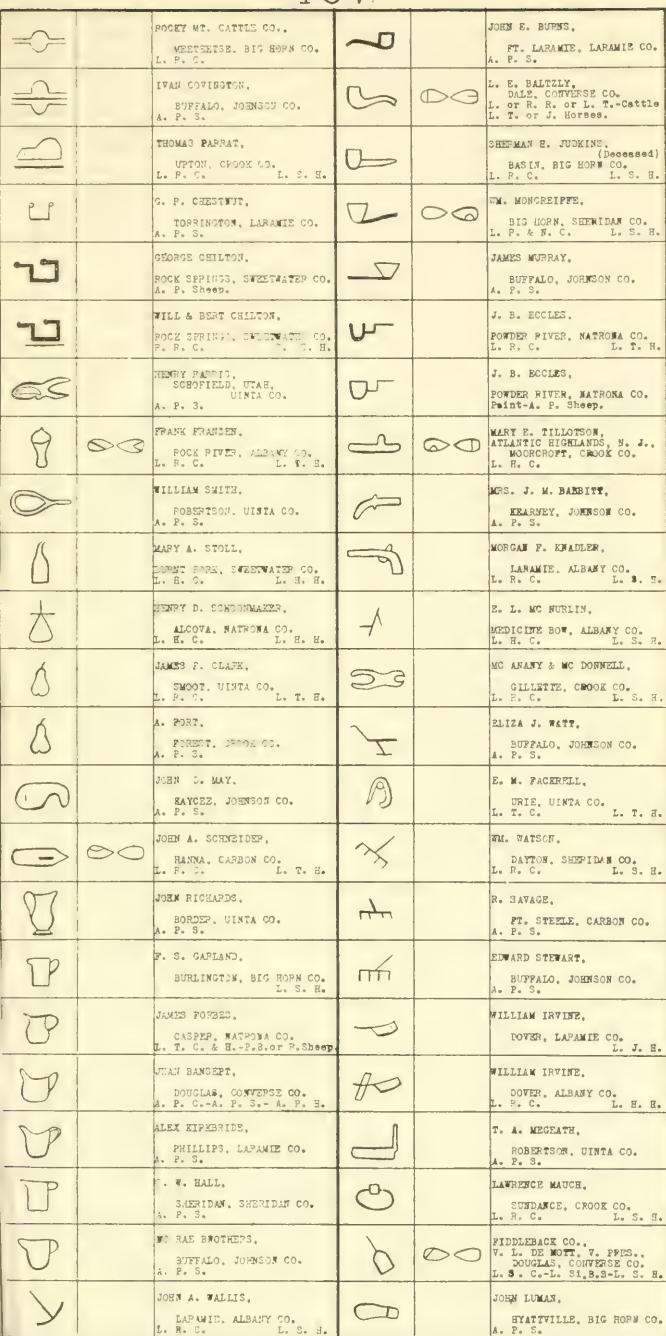 ROCKY MT. CATTLE CO.,
MEETEETSE. BIG HORN CO.
L. R. C.
IVAN COVINGTON,
BUFFALO, JOHNSON CO.
A. P. S.
THOMAS PARRAT,
UPTON, CROOK CO.
L. R. C. L. S. H.
G. P. CHESTNUT,
TORRINGTON, LARAMIE CO.
A. P. S.
GEORGE CHILTON,
ROCK SPRINGS, SWEETWATER CO.
A. P. Sheep.
WILL & BERT CHILTON,
ROCK SPRINGS, SWEETWATER CO.
R. R. C. H.
HENRY
SCHOFIELD, UTAH,
UINTA CO.
A. P. S.
FRANK FRANZEN,
ROCK RIVER, ALBANY CO.
L. R. C. L. T. H.
WILLIAM SMITH,
ROBERTSON, UINTA CO.
A. P. S.
MARY A. STOLL,
BURNT FORK, SWEETWATER CO.
L. H. C. L. H. H.
HENRY D. SCHOONMAKER,
ALCOVA, NATRONA CO.
L. H. C. L. H. H.
JAMES F. CLARK,
SMOOT, UINTA CO.
L. R. C. L. T. H.
A. PORT,
FOREST, CROOK CO.
A. P. S.
JOHN MAY,
KAYCEE, JOHNSON CO.
A. P. S.
JOHN A. SCHNEIDER,
HANNA, CARBON CO.
L. R. C. L. T. H.
JOHN RICHARDS,
BORDER, UINTA CO.
A. P. S.
F. S. GARLAND,
BURLINGTON, BIG HORN CO.
L. S. H.
JAMES FORBES,
CASPER, NATRONA CO.
L. T. C. & H.-P.B.or P.Sheep.
JEAN BANGEPT,
DOUGLAS, CONVERSE CO.
A. P. C.-A. P. S.- A. P. H.
ALEX KIRKBRIDE,
PHILLIPS, LARAMIE CO.
A. P. S.
W. HALL,
SHERIDAN, SHERIDAN CO.
A. P. S.
MC RAE BROTHERS,
BUFFALO, JOHNSON CO.
A. P. S.
JOHN A. WALLIS,
LARAMIE, ALBANY CO.
L. R. C. L. S. H.
JOHN E. BURNS,
FT. LARAMIE, LARAMIE CO.
A. P. S.
L. E. BALTZLY,
DALE, CONVERSE CO.
L. or R. R. or L. T.-Cattle
L. T. or J. Horses.
SHERMAN H. JUDKINS,
(Deceased)
BASIN, BIG HORN CO.
L. R. C. L. S. H.
WM. MONCREIFFE,
BIG HORN, SHERIDAN CO.
L. P. & N. C. L. S. H.
JAMES MURRAY,
BUFFALO, JOHNSON CO.
A. P. S.
J. B. ECCLES,
POWDER RIVER, NATRONA CO.
L. R. C. L. T. H.
J. B. ECCLES,
POWDER RIVER, NATRONA CO.
Paint-A. P. Sheep.
MARY E. TILLOTSON,
ATLANTIC HIGHLANDS, N. J.,
MOORCROFT, CROOK CO.
L. H. C.
MRS. J. M. BABBITT,
KEARNEY, JOHNSON CO.
A. P. S.
MORGAN F. KNADLER,
LARAMIE, ALBANY CO.
L. R. C. L. S. H.
E. L. MC NURLIN,
MEDICINE BOW, ALBANY CO.
L. H. C. L. S. H.
MC ANANY & MC DONNELL,
GILLETTE, CROOK CO.
L. R. C. L. S. H.
ELIZA J. WATT,
BUFFALO, JOHNSON CO.
A. P. S.
E. M. FACKRELL,
URIE, UINTA CO.
L. T. C. L. T. H.
WM. WATSON,
DAYTON, SHERIDAN CO.
L. R. C. L. S. H.
R. SAVAGE,
FT. STEELE, CARBON CO.
A. P. S.
EDWARD STEWART,
BUFFALO, JOHNSON CO.
A. P. S.
WILLIAM IRVINE,
DOVER, LARAMIE CO.
L. J. H.
WILLIAM IRVINE,
DOVER, ALBANY CO.
L. R. C. L. H. H.
T. A. MEGEATH,
ROBERTSON, UINTA CO.
A. P. S.
LAWRENCE MAUCH,
SUNDANCE, CROOK CO.
L. R. C. L. S. H.
FIDDLEBACK CO.,
V. L. DE MOTT, V. PRES.,
DOUGLAS, CONVERSE CO.
L. S. C.-L. Si.B.S-L. S. H.
JOHN LUMAN,
HYATTVILLE, BIG HORN CO.
A. P. S.